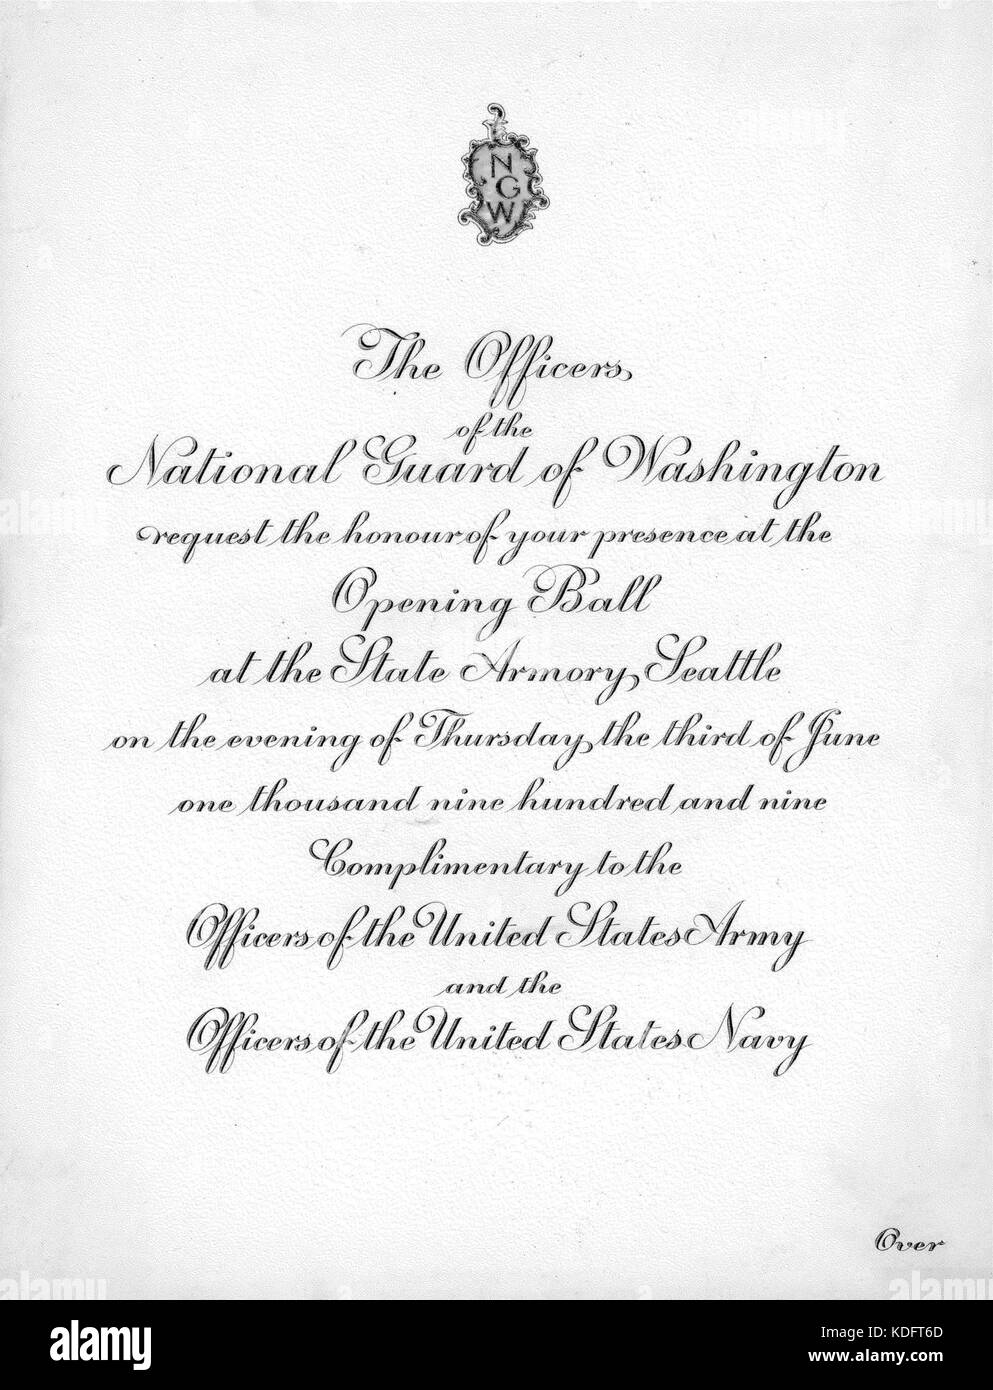 N
G
W
The Officers
of the
National Guard of Washington
request the honour of your presence at the
Opening Ball
at the State Armory, Seattle
on the evening of Thursday, the third of June
one thousand nine hundred and nine
Complimentary to the
Officers of the United States Army
and the
Officers of the United States Navy
Over
alamy
Image ID: KDFT6D
www.alamy.com